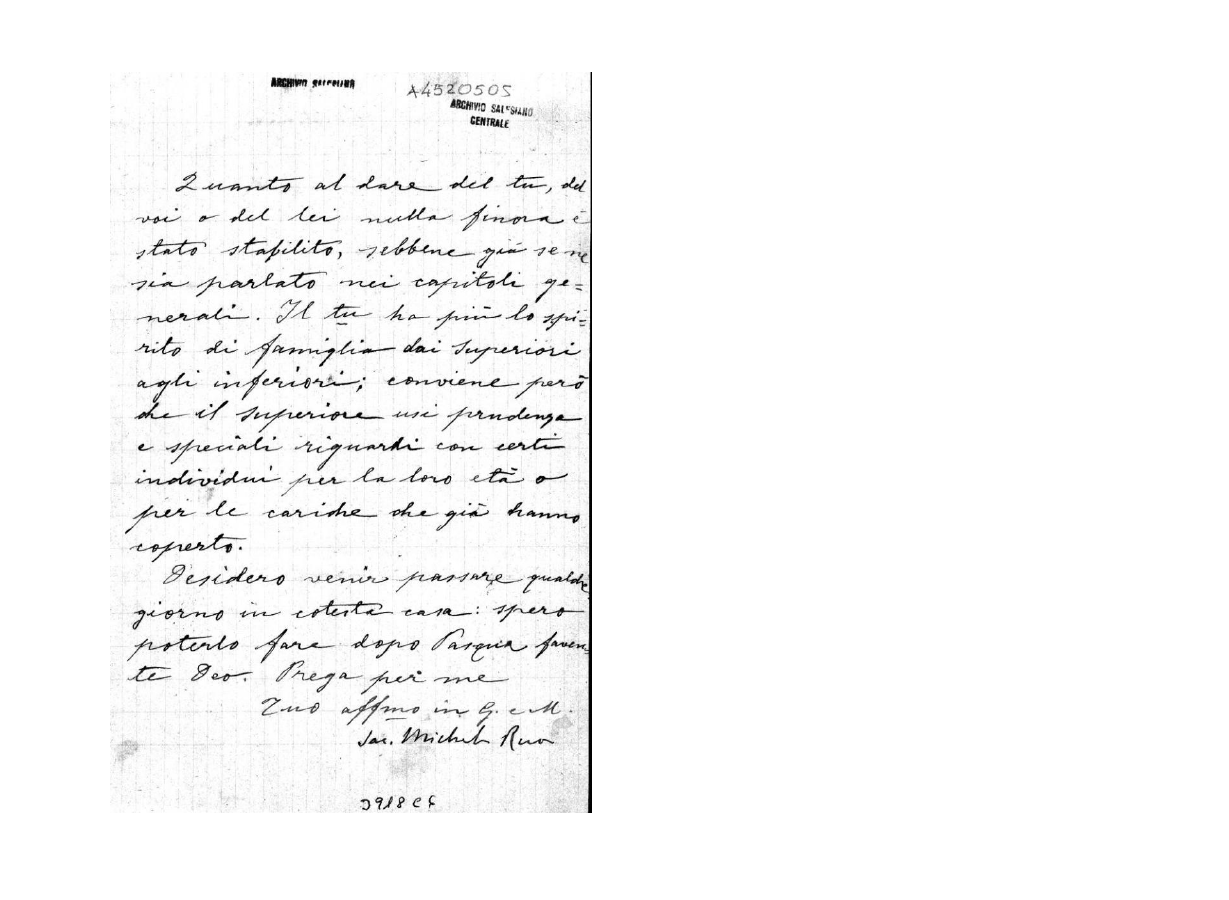 ARCHIVIO SALESIANO
A4520505
ARCHIVIO SALESIANO
CENTRALE
Quanto al dare del tu, del
voi o del lei nulla finora è
stato stabilito, sebbene già se ne
sia parlato nei capitoli ge=
nerali. Il tu ha più lo spi=
rito di famiglia dai Superiori
agli inferiori; conviene però
che il Superiore usi prudenza
e speciali riguardi con certi
individui per la loro età o
per le cariche che già hanno
coperto.
Desidero venir passare qualche
giorno in cotesta casa: spero
poterlo fare dopo Pasqua faven=
te Deo. Prega per me
Tuo affmo in G. e M.
Sac. Michele Rua
3918 C6